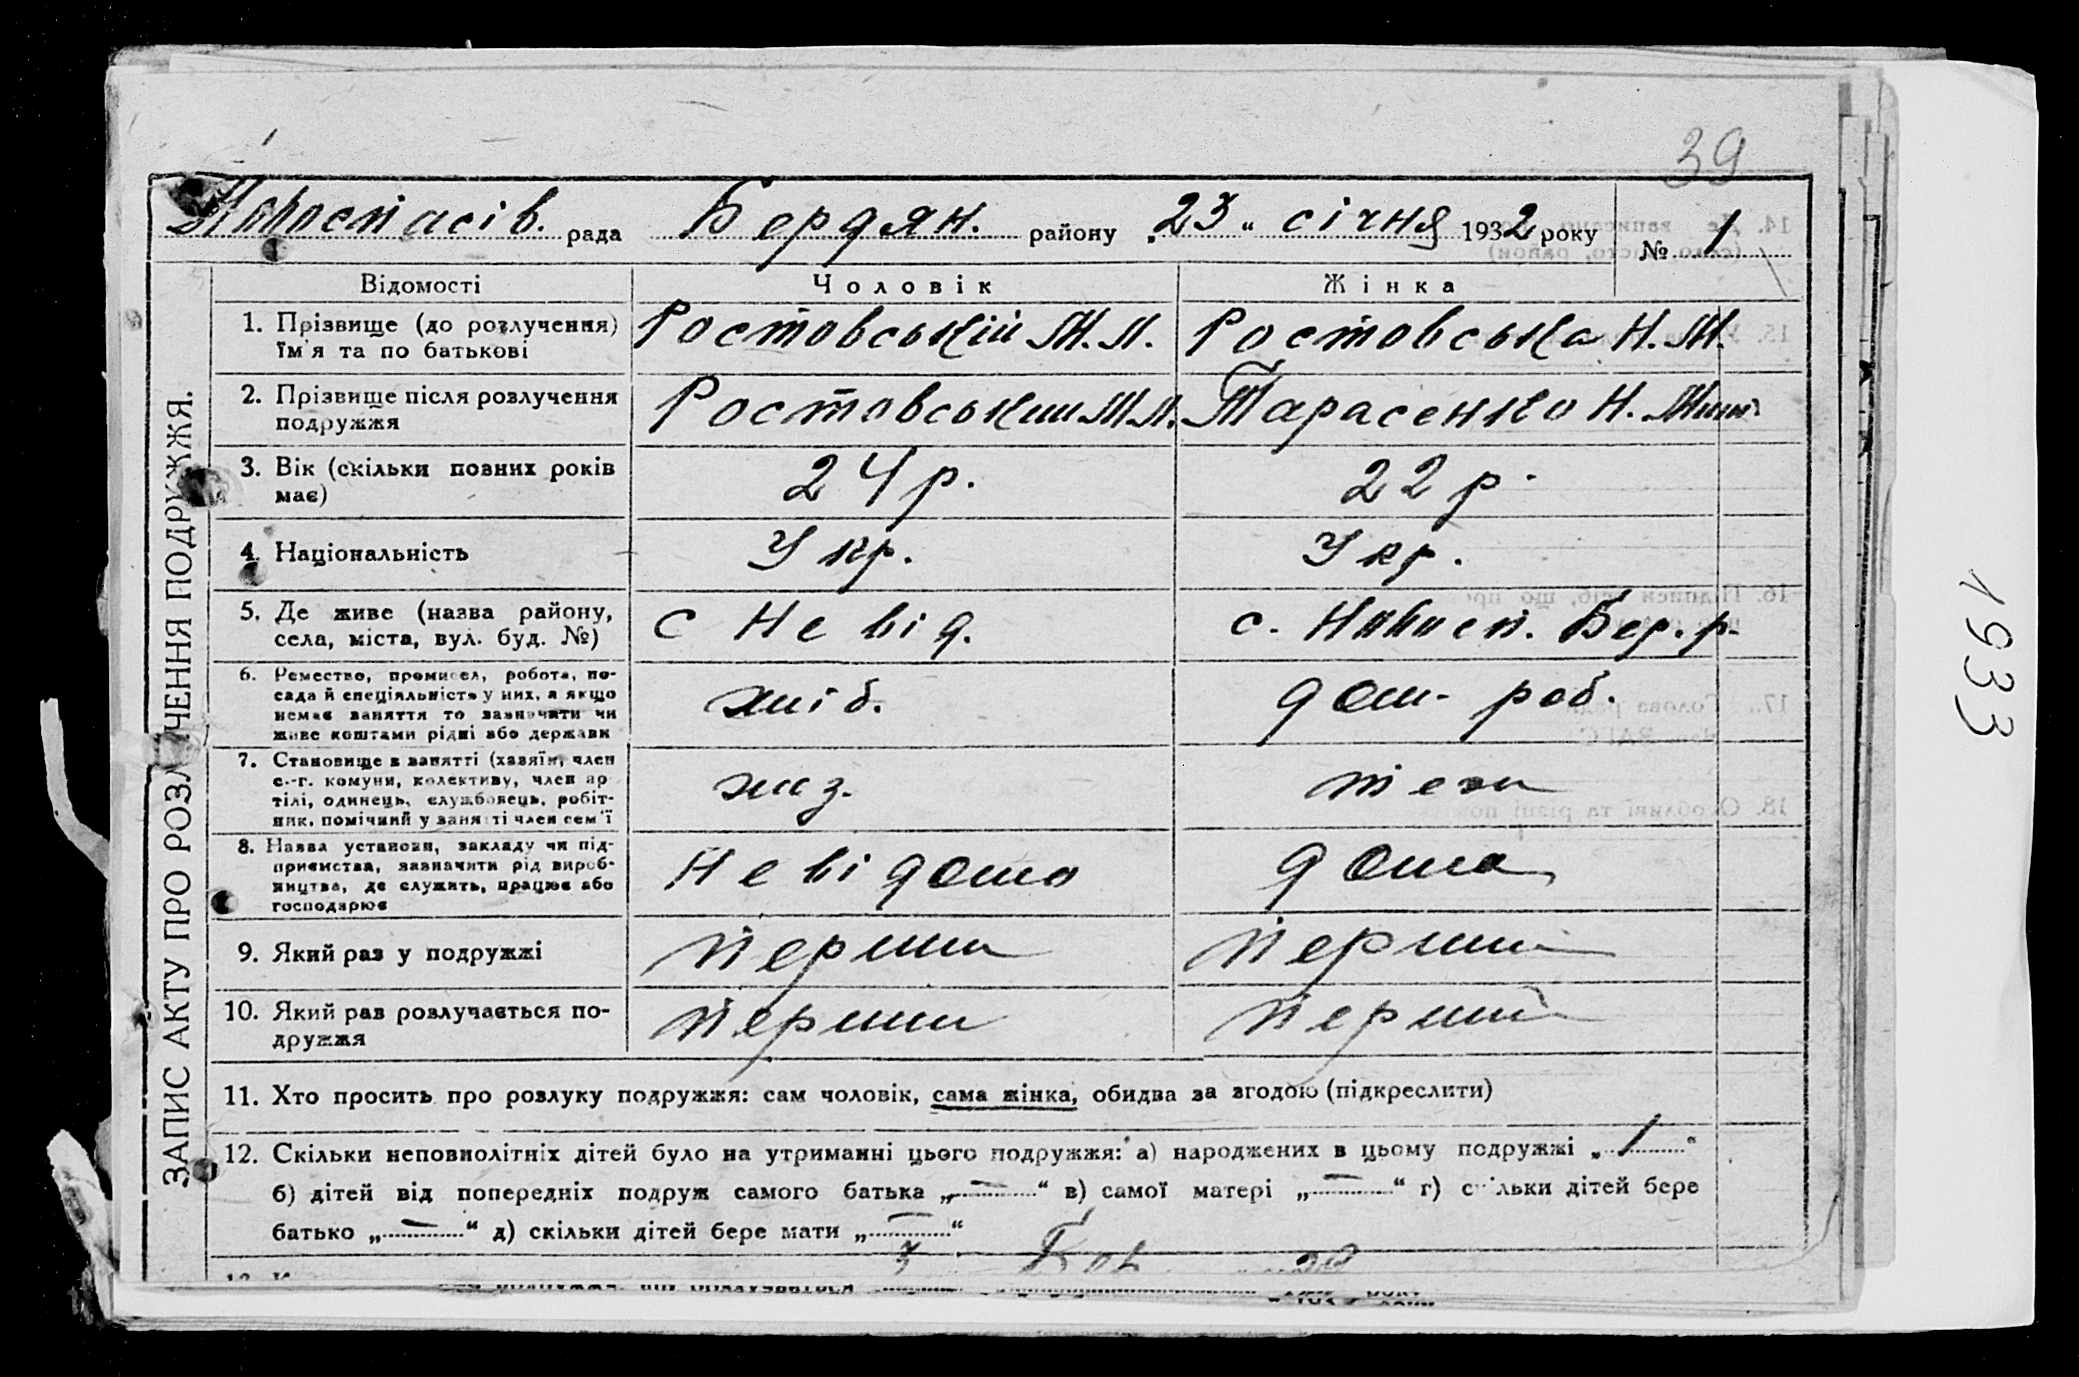 39
Новоспасів. рада Бердян. району „23“ січня 1932 року № 1
ЗАПИС АКТУ ПРО РОЗЛУЧЕННЯ ПОДРУЖЖЯ.
Відомості Чоловік Жінка
1. Прізвище (до розлучення) Ростовський М. Л. Ростовська Н. М.
їм'я та по батькові
2. Прізвище після розлучення Ростовський М.Л. Тарасенко Н.
подружжя
3. Вік (скільки повних років 24 р. 22 р.
має)
4. Національність Укр. Укр.
5. Де живе (назва району, с Невід. с. Новосп. Бер. р.
села, міста, вул. буд. №)
6. Ремество, промисел, робота, по-
сада й спеціяльність у них, а якщо хліб. дом. роб.
немає заняття то зазначати чи
живе коштами рідні або держави
7. Становище в занятті (хазяїн, член
с.-г. комуни, колективу, член ар-
тілі, одинець, службовець, робіт-
ник, помічний у занятті член сем'ї
8. Назва установи, закладу чи під-
приємства, зазначити рід вироб- Невідомо дома
ництва, де служить, працює або
господарює
9. Який раз у подружжі перший перший
10. Який раз розлучається по- перший перший
дружжя
11. Хто просить про розлуку подружжя: сам чоловік, сама жінка, обидва за згодою (підкреслити)
12. Скільки неповнолітніх дітей було на утриманні цього подружжя: а) народжених в цьому подружжі „1“
б) дітей від попередніх подруж самого батька „—“ в) самої матері „—“ г) скільки дітей бере
батько „—“ д) скільки дітей бере мати „—“
1933